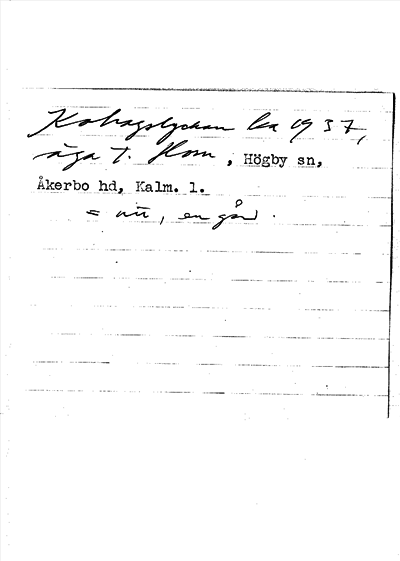 Kohagslyckan ka 1937,
äga t. Horn, Högby sn,
Åkerbo hd, Kalm. l.
= nu, en gård.